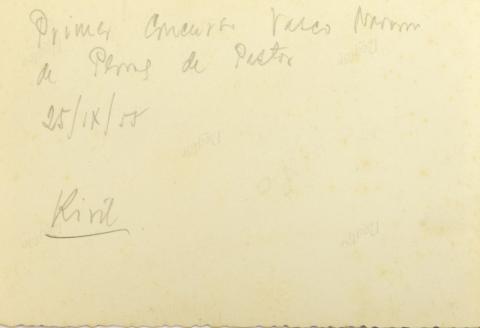 Primer Concurso Vasco Navarro
de Perros de Pastor
25/IX/55
Kiril